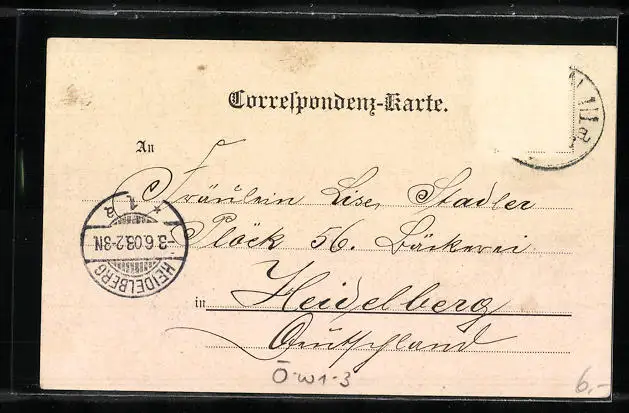 Correspondenz-Karte.
An
Fräulein Lise Stadler
Plöck 56. Bäckerei
in Heidelberg
Deutschland
HEIDELBERG
-3.6.03.2-3N
* 1. *
Ö-W1-3
6,-